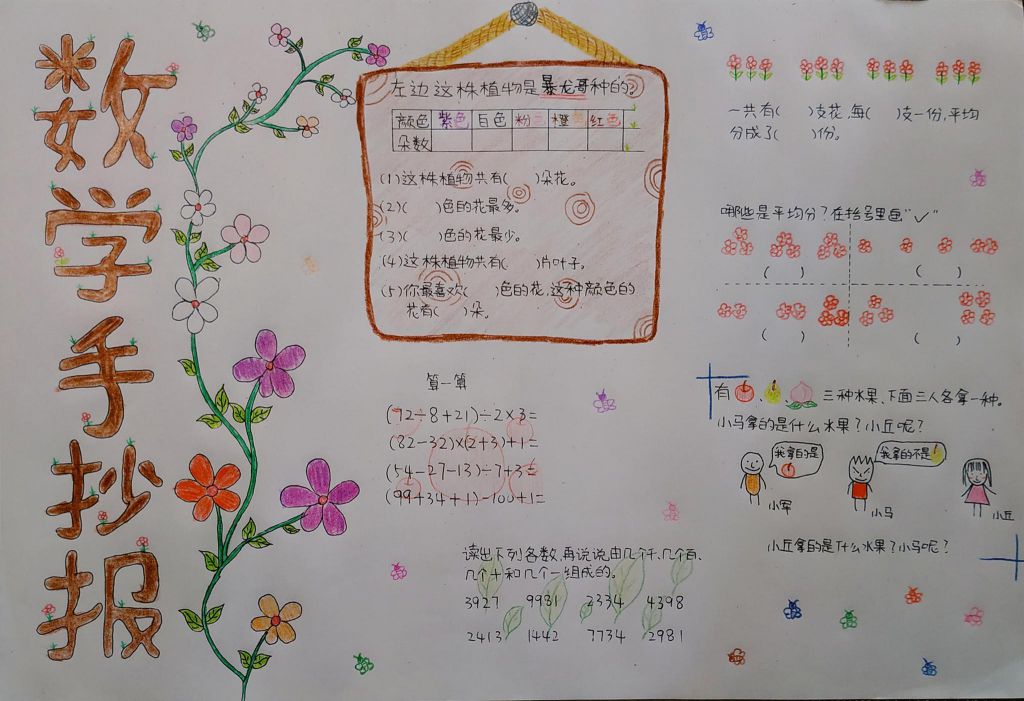 数学手抄报
左边这株植物是暴龙哥种的。
颜色 紫色 白色 粉色 橙色 红色
朵数
(1)这株植物共有( )朵花。
(2)( )色的花最多。
(3)( )色的花最少。
(4)这株植物共有( )片叶子。
(5)你最喜欢( )色的花,这种颜色的
花有( )朵。
算一算
(72÷8+21)÷2×3=
(82-32)×(2+3)+1=
(54-27-13)÷7+3=
(99+34+1)-100+1=
读出下列各数,再说说由几个千、几个百、
几个十和几个一组成的。
3927 9981 2334 4398
2413 1442 7734 2981
一共有( )支花,每( )支一份,平均
分成了( )份。
哪些是平均分?在括号里画"✓"
( ) ( )
( ) ( )
有 、 、 三种水果、下面三人各拿一种。
小马拿的是什么水果?小丘呢?
我拿的是
我拿的不是
小军
小马
小丘
小丘拿的是什么水果?小马呢?